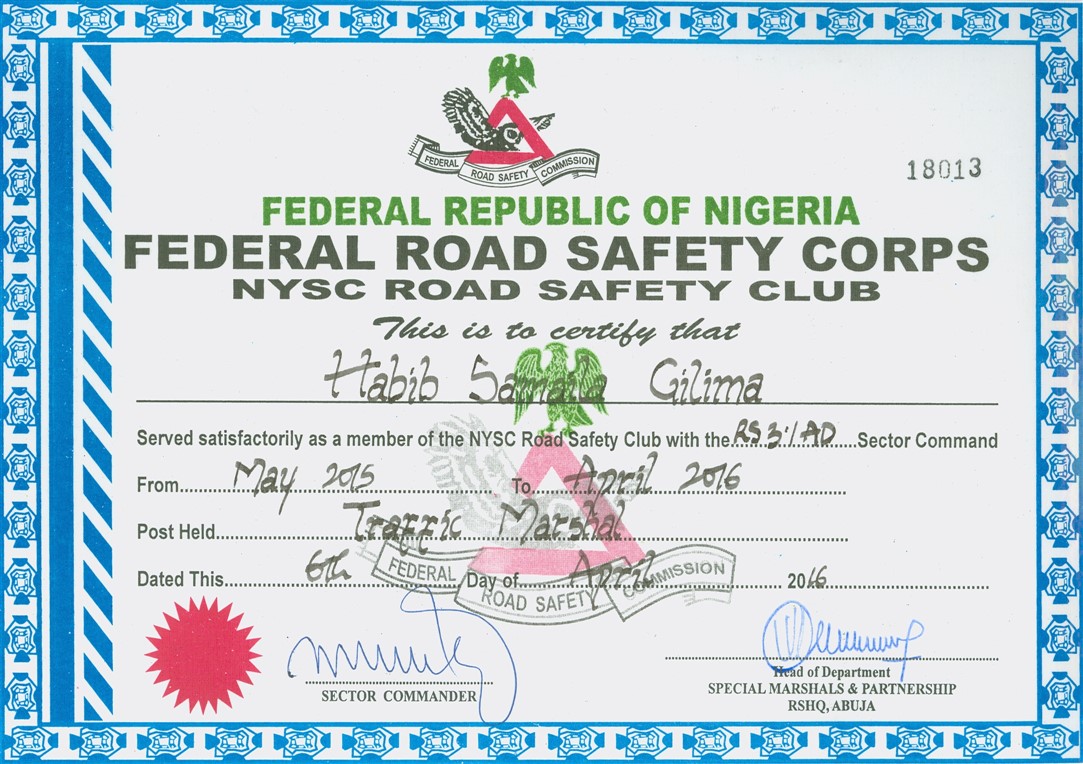 FEDERAL ROAD SAFETY COMMISSION
18013
FEDERAL REPUBLIC OF NIGERIA
FEDERAL ROAD SAFETY CORPS
NYSC ROAD SAFETY CLUB
This is to certify that
Habib Samaila Gilima
Served satisfactorily as a member of the NYSC Road Safety Club with the RS 3.1 AD Sector Command
From May 2015 To April 2016
Post Held Traffic Marshal
Dated This 6th Day of April 2016
FEDERAL ROAD SAFETY COMMISSION
SECTOR COMMANDER
Head of Department
SPECIAL MARSHALS & PARTNERSHIP
RSHQ, ABUJA